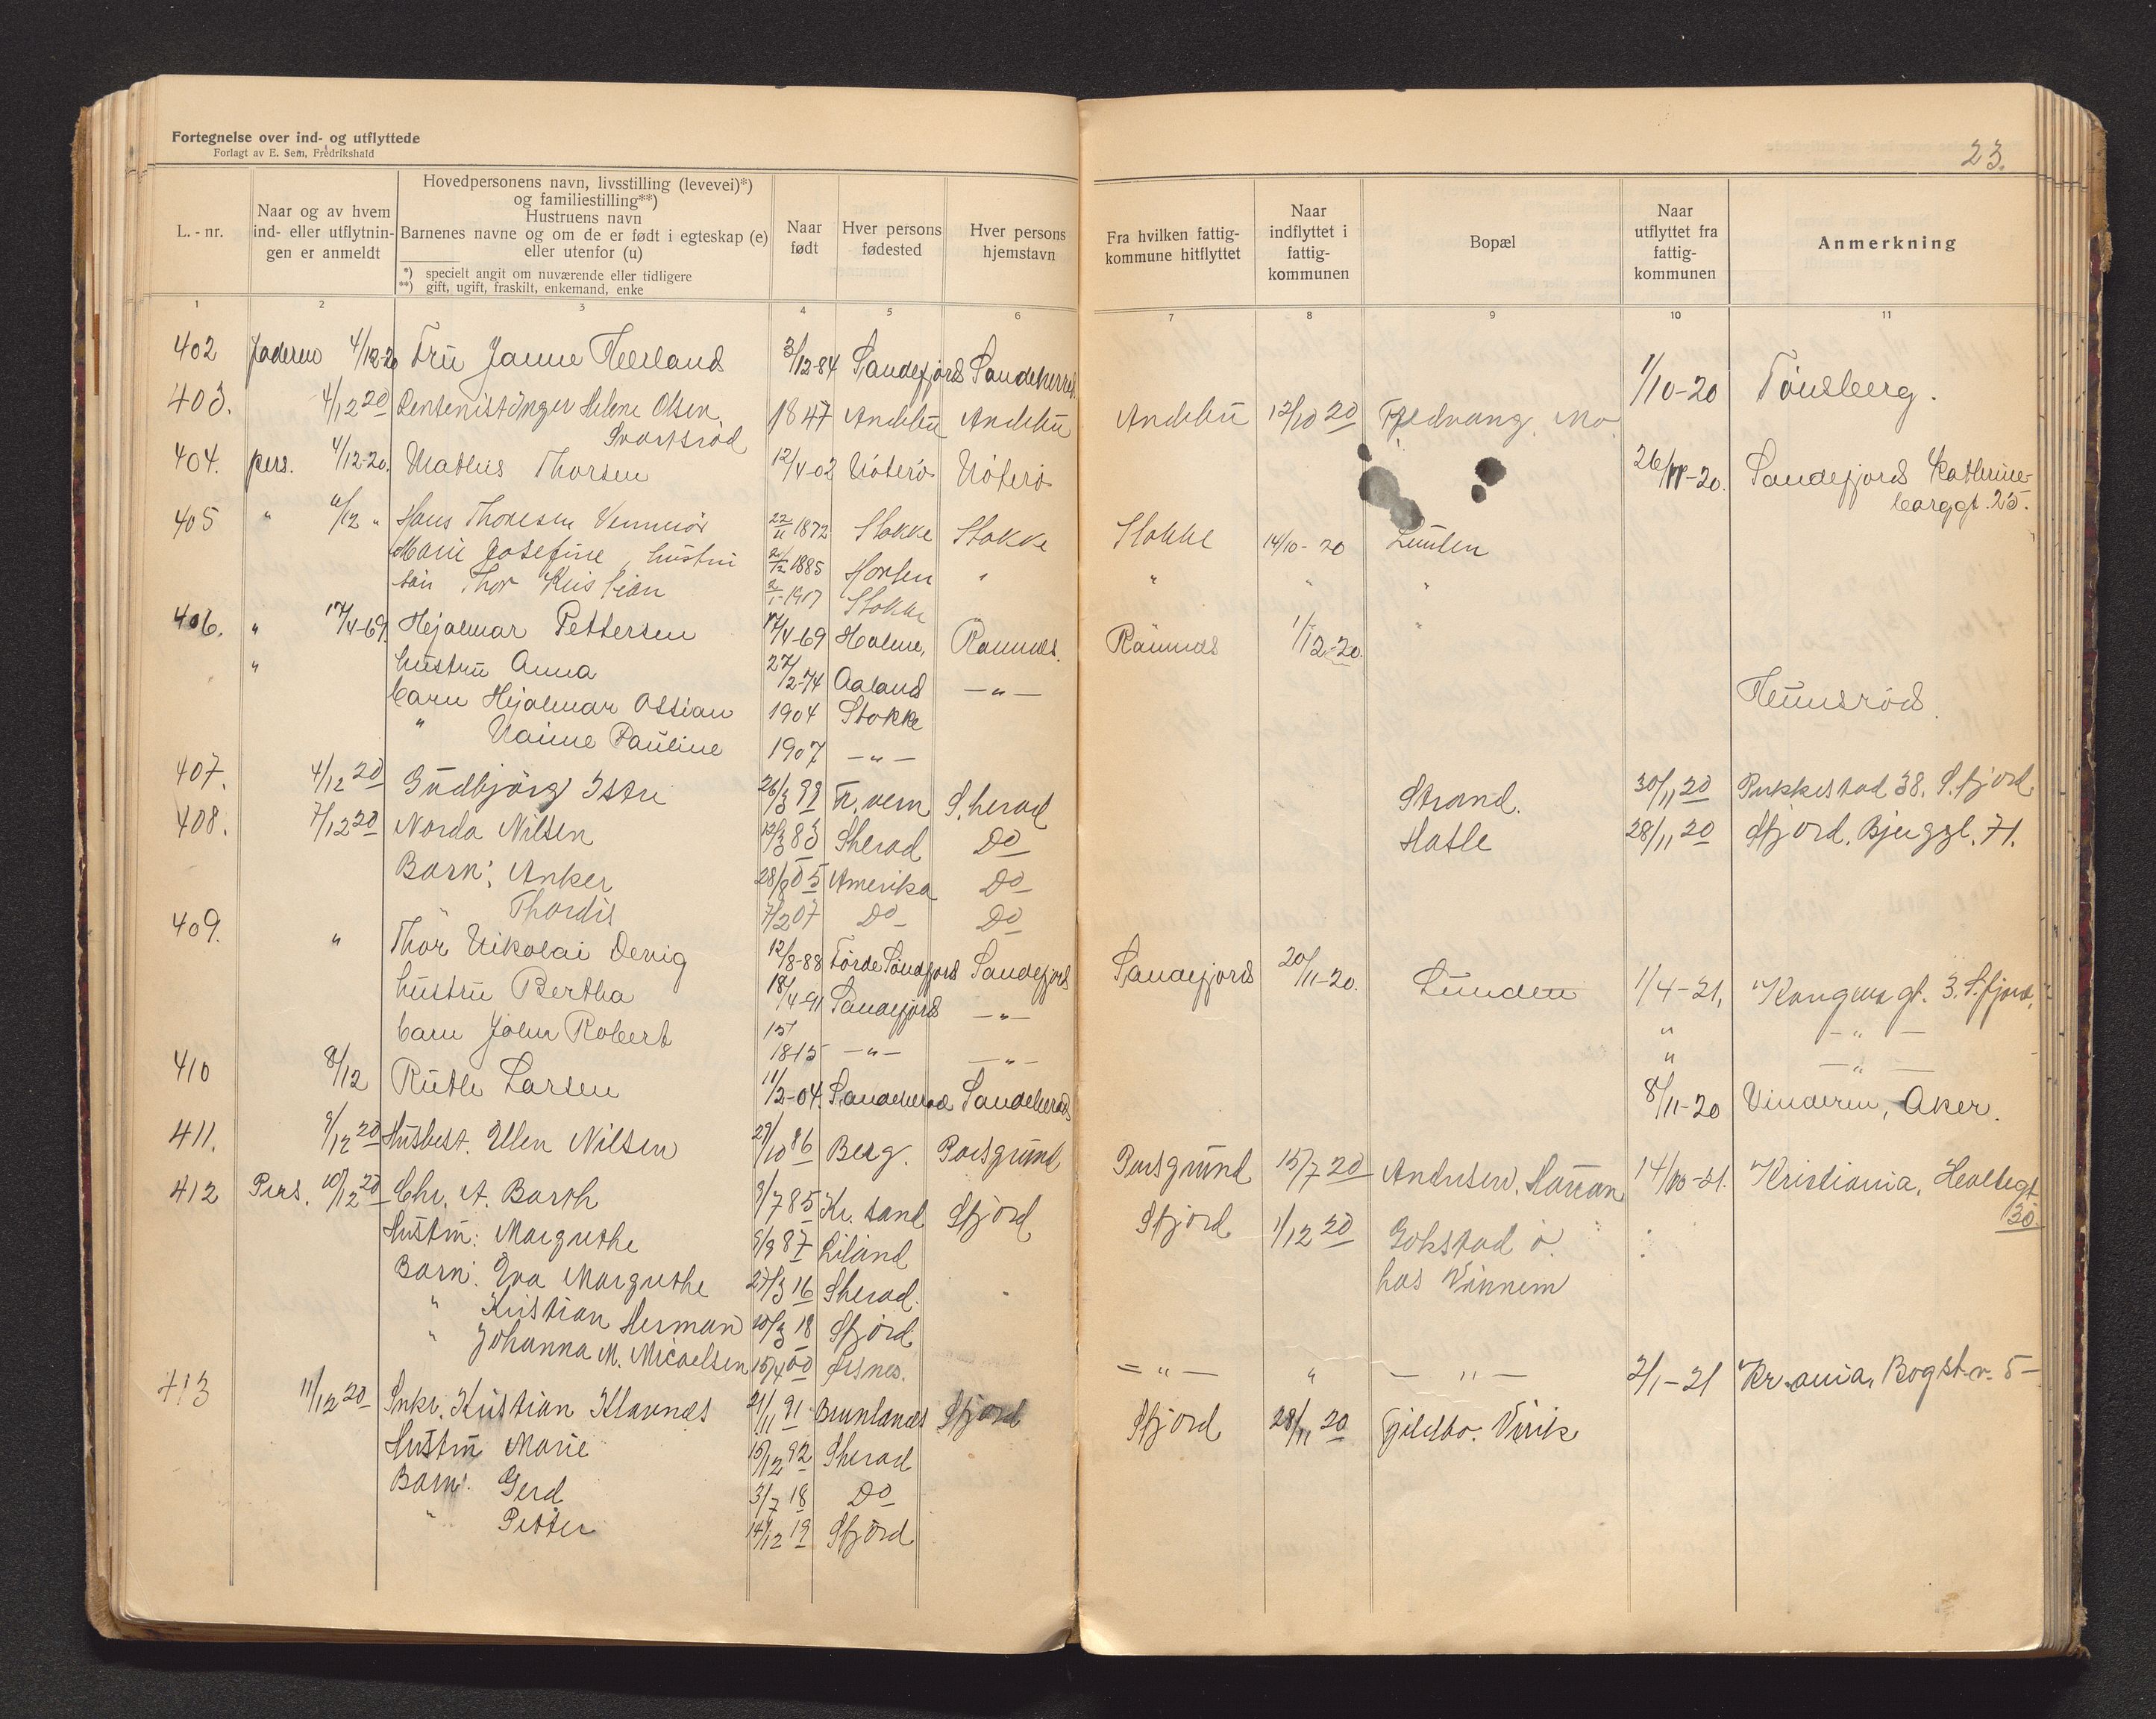 Fortegnelse over ind- og utflyttede
Forlagt av E. Sem, Fredrikshald
23.
L.-nr.
Naar og av hvem ind- eller utflytningen er anmeldt
Hovedpersonens navn, livsstilling (levevei)*)
og familiestilling**)
Hustruens navn
Barnenes navne og om de er født i egteskap (e)
eller utenfor (u)
*) specielt angit om nuværende eller tidligere
**) gift, ugift, fraskilt, enkemand, enke
Naar født
Hver persons fødested
Hver persons hjemstavn
Fra hvilken fattigkommune hitflyttet
Naar indflyttet i fattigkommunen
Bopæl
Naar utflyttet fra fattigkommunen
Anmerkning
1 2 3 4 5 6 7 8 9 10 11
402 faderen 4/12-20 Fru Janne 3/12-84 Sandefjord Sandeherred 1/10-20 Tönsberg.
403. 4/12 20 Inger Helene Olsen 1847 Andebu Andebu Andebu 12/10 20 Mo
Svartsrød
404. pers. 4/12-20. Mathis Thorsen 12/4-02 Nöterö Nöterö 26/11-20. Sandefjord Kathrine-
borggt. 25.
405 " 4/12 " Hans Thoresen 22/11 1872 Stokke Stokke Stokke 14/10-20 Lunden
Marie Josefine, hustru 2/12 1885 Horten " " " "
søn Thor Kristian 2/1-1917 Stokke
406. " 17/4-69. Hjalmar Pettersen 17/4-69 Ramnes. Ramnes 1/12-20. "
" hustru Anna 27/2-74 Aaland —"—
barn Hjalmar Ossian 1904 Stokke
" Nanne Pauline 1907 —"—
407. 4/12 20 Gudbjörg Istre 26/3 99 Fr.vern S.herad Strand. 30/11 20 Pukkestad 38. S.fjord
408. 7/12 20 Norda Nilsen 12/3 83 Sherad Do Hasle 28/11 20 Sfjord. Bjerggt. 71.
Barn: Anker 28/8 05 Amerika Do
" Thordis 7/2 07 Do Do
409. " Thor Nikolai Devig 12/8-88 Förde Söndfjord Sandefjord Sandefjord 20/11-20. Lunden 1/4-21, Kongensgt. 3. S.fjord,
hustru Bertha 18/4-91 Sandefjord —"— " —"—
barn John Robert 15/ 18-15 —"— —"— " —"—
410 8/12 Ruth Larsen 11/2-04. Sandeherad Sandeherad 8/11-20 Vinderen, Aker.
411. 9/12 20 Husbest. Ellen Nilsen 29/10 86 Berg. Porsgrund Porsgrund 15/7 20 Andersen, 14/10-21. Kristiania,
30.
412 Pers. 10/12 20 Chr. A. Barth 9/7 85 Kr.sand Sfjord Sfjord 1/12 20 Gokstad ö.
Hustru: Margrethe 5/9 87 Liland hos Vinnem
Barn: Eva Margrethe 27/3 16 Sherad.
" Kristian Herman 10/3 18 Sfjord.
" Johanna M. Micaelsen 15/4 00 —"— " —"— 2/1-21 Kr.ania, Bogst.v. 5
413 11/12 20 Snkr. Kristian Klavnes 21/11 91 Brunlanes Sfjord Sfjord 28/11 20 Gjildbo. Virik
Hustru Marie 15/12 92 Sherad
Barn: Gerd 3/7 18 Do
" Petter 14/12 19 Sfjord